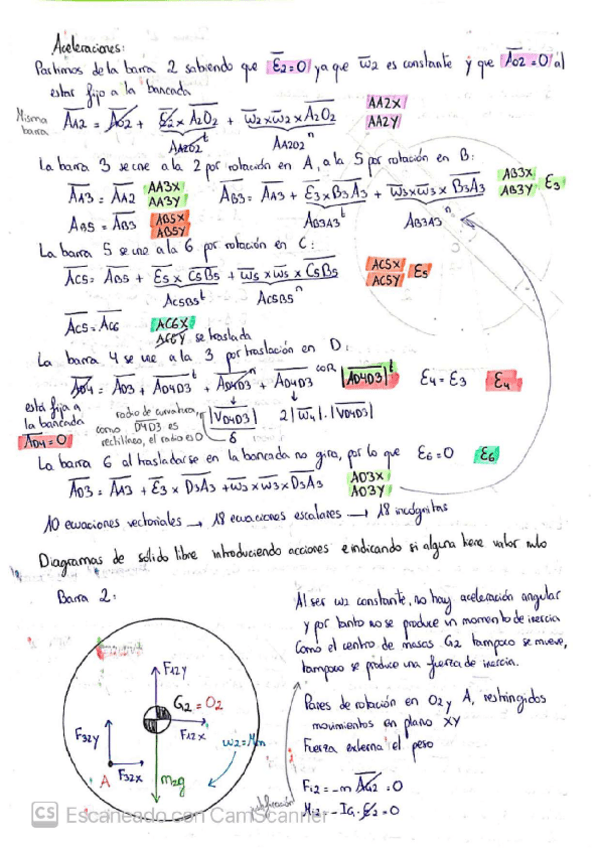 Aceleraciones:
Partimos de la barra 2 sabiendo que ε̅2=0 ya que w̅2 es constante y que A̅O2=0 al
estar fijo a la bancada
Misma barra A̅A2 = A̅O2 + ε̅2 × A2O2 + w̅2×w̅2×A2O2 AA2X
AA2O2^t AA2O2^n AA2Y
La barra 3 se une a la 2 por rotación en A, a la 5 por rotación en B:
A̅A3 = A̅A2 AA3X AA3Y A̅B3 = A̅A3 + ε̅3×B3A3 + w̅3×w̅3×B3A3 AB3X AB3Y ε3
A̅B5 = A̅B3 AB5X AB5Y AB3A3^t AB3A3^n
La barra 5 se une a la 6 por rotación en C:
A̅C5 = A̅B5 + ε̅5 × C5B5 + w̅5×w̅5×C5B5 AC5X AC5Y ε5
AC5B5^t AC5B5^n
A̅C5 = A̅C6 AC6X AC6Y se traslada
La barra 4 se une a la 3 por traslación en D:
A̅D4 = A̅D3 + A̅D4D3^t + A̅D4D3^n + A̅D4D3^cor |A̅D4D3|^t ε4 = ε3 ε4
está fija a la bancada
A̅D4=0
radio de curvatura,
como D4D3 es
rectilíneo, el radio es 0
|V̅D4D3| 2|w̅4|·|V̅D4D3|
δ
La barra 6 al trasladarse en la bancada no gira, por lo que ε6=0 ε6
A̅D3 = A̅A3 + ε̅3 × D3A3 + w̅3×w̅3×D3A3 AD3X AD3Y
10 ecuaciones vectoriales → 18 ecuaciones escalares → 18 incógnitas
Diagramas de sólido libre introduciendo acciones e indicando si alguna tiene valor nulo
Barra 2:
Al ser w2 constante, no hay aceleración angular
y por tanto no se produce un momento de inercia
Como el centro de masas G2 tampoco se mueve,
tampoco se produce una fuerza de inercia.
F12Y
G2=O2
F32Y
F12X
w2=
F32X
A
m2g
Pares de rotación en O2 y A, restringidos
movimientos en plano XY
Fuerza externa el peso
justificación
Fi2 = -m A̅G2 = 0
Mi2 = -IG·ε̅2 = 0
CS Escaneado con CamScanner